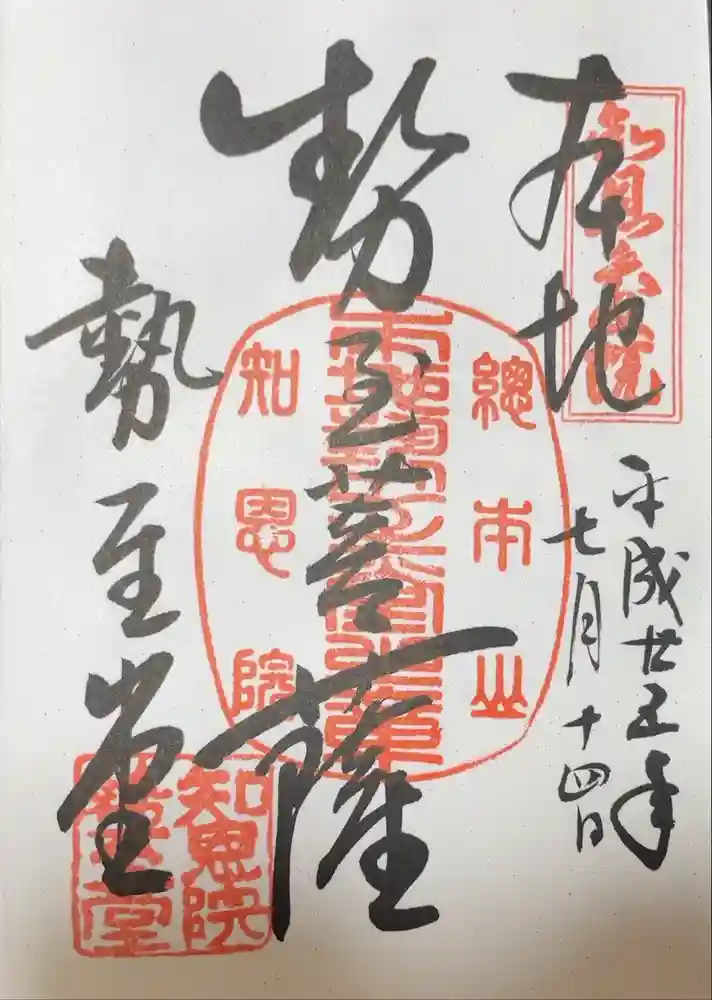 本地
平成廿五年
七月十四日
勢至菩薩
勢至堂
總本山
知恩院
知恩院
勢至堂